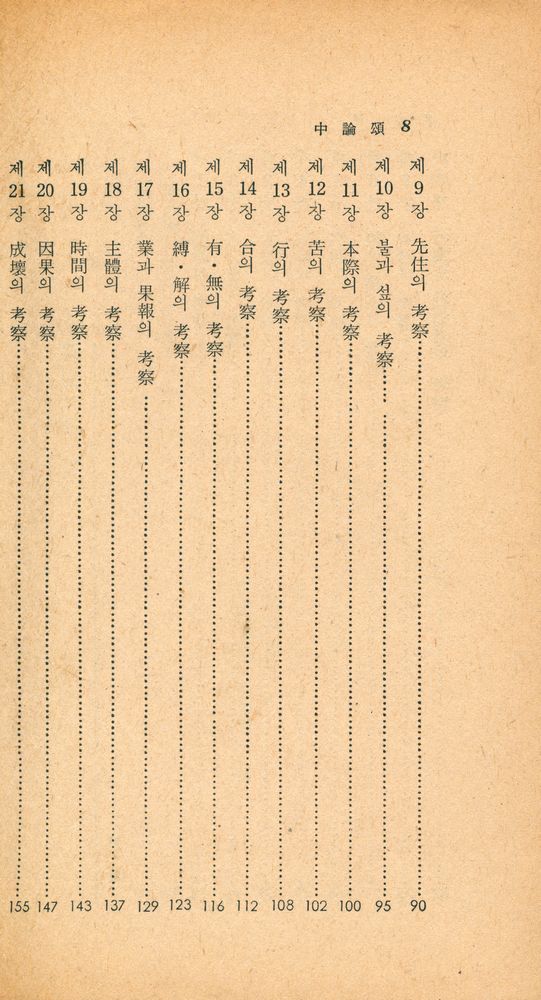 中論頌 8
제9장 先住의 考察 90
제10장 불과 섶의 考察 95
제11장 本際의 考察 100
제12장 苦의 考察 102
제13장 行의 考察 108
제14장 合의 考察 112
제15장 有·無의 考察 116
제16장 縛·解의 考察 123
제17장 業과 果報의 考察 129
제18장 主體의 考察 137
제19장 時間의 考察 143
제20장 因果의 考察 147
제21장 成壞의 考察 155